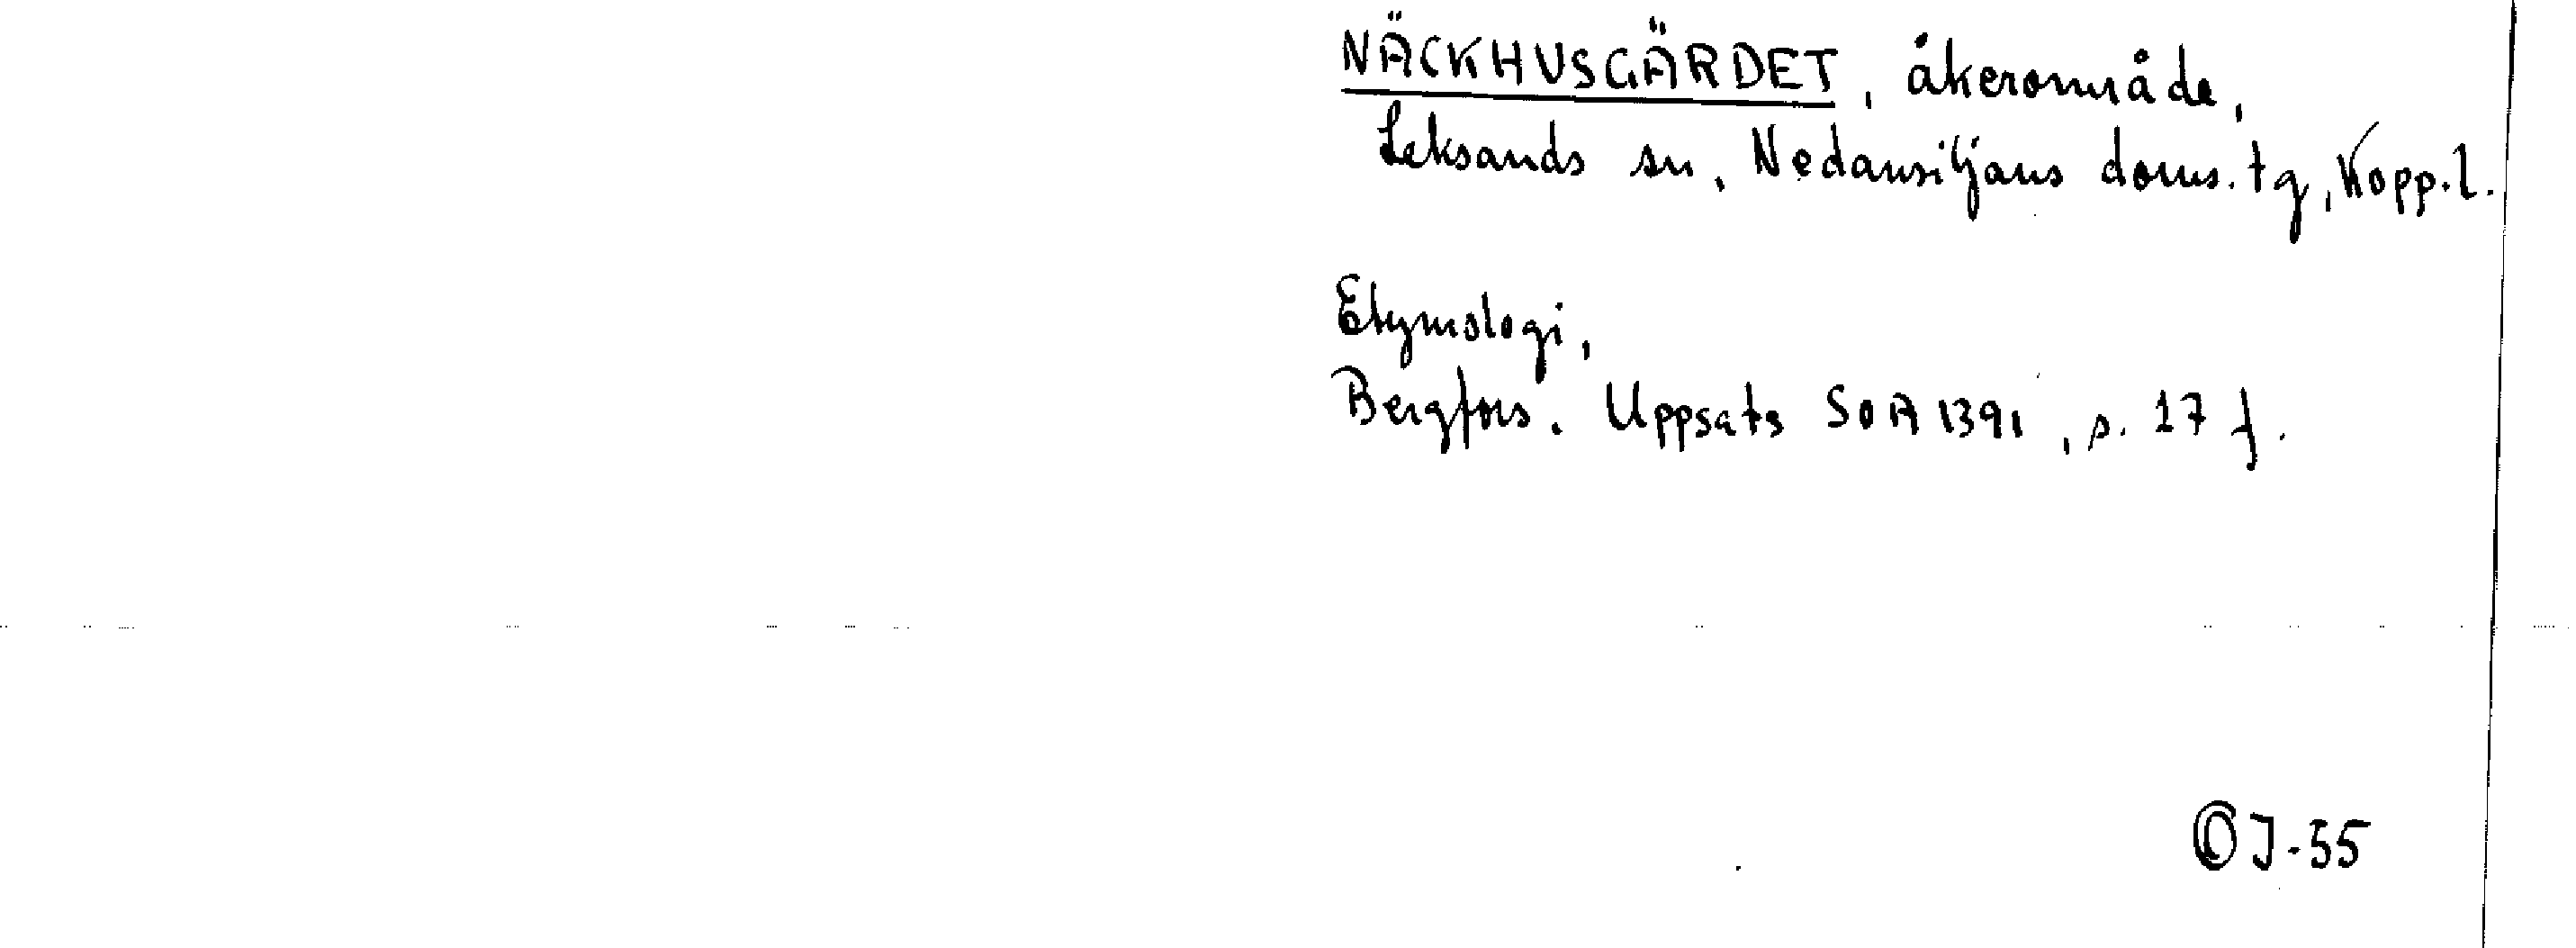 NÄCKHUSGÄRDET, åkerområde,
Leksands sn, Nedansiljans doms.tg, Kopp.l.
Etymologi,
Bergfors. Uppsats SOA 1391, s. 17 f.
OJ-55